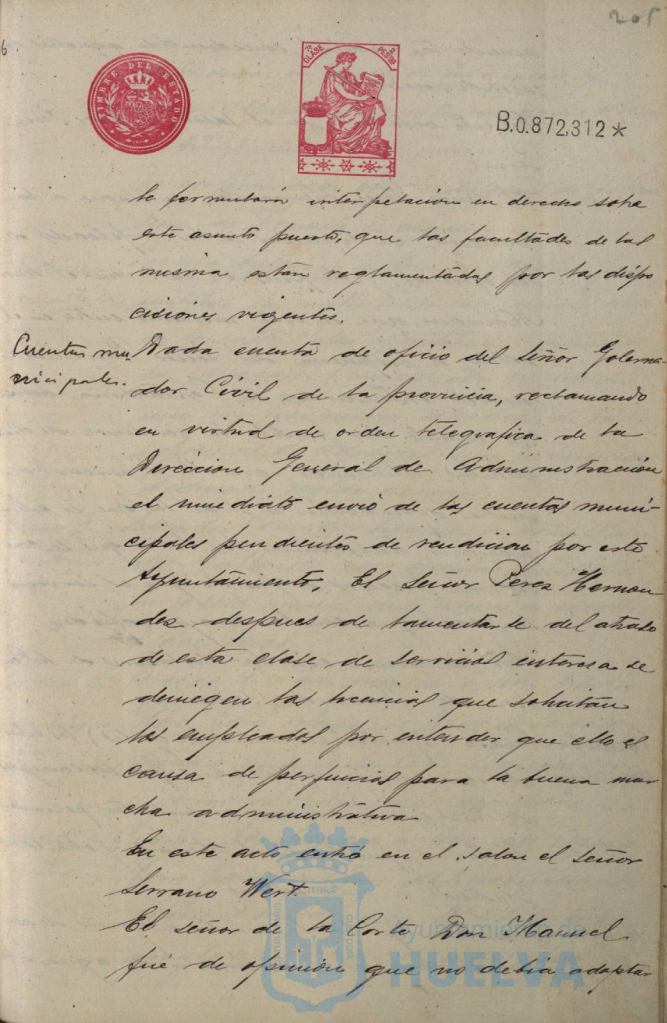 205
6
TIMBRE DEL ESTADO
7a CLASE
PESETAS
B.0.872,312*
le formulará interpelacion en derecho sobre
este asunto puesto, que las facultades de las
misma están reglamentadas por las dispo
siciones vigentes.
Cuentas mu
nicipales.
Dada cuenta de oficio del Señor Goberna-
dor Civil de la provincia, reclamando
en virtud de orden telegrafica de la
Direccion General de Administración
el inmediato envió de las cuentas muni-
cipales pendientes de rendicion por este
Ayuntamiento, El Señor Perez Hernan
dez despues de lamentarse del atraso
de esta clase de servicios interesa se
denieguen las licencias que solicitan
los empleados por entender que ello es
causa de perjuicios para la buena mar
cha administrativa
En este acto entró en el salon el señor
Serrano Wert.
El señor de la Corte Don Manuel
fué de opinión que no debia adoptar
Ayuntamiento de
HUELVA